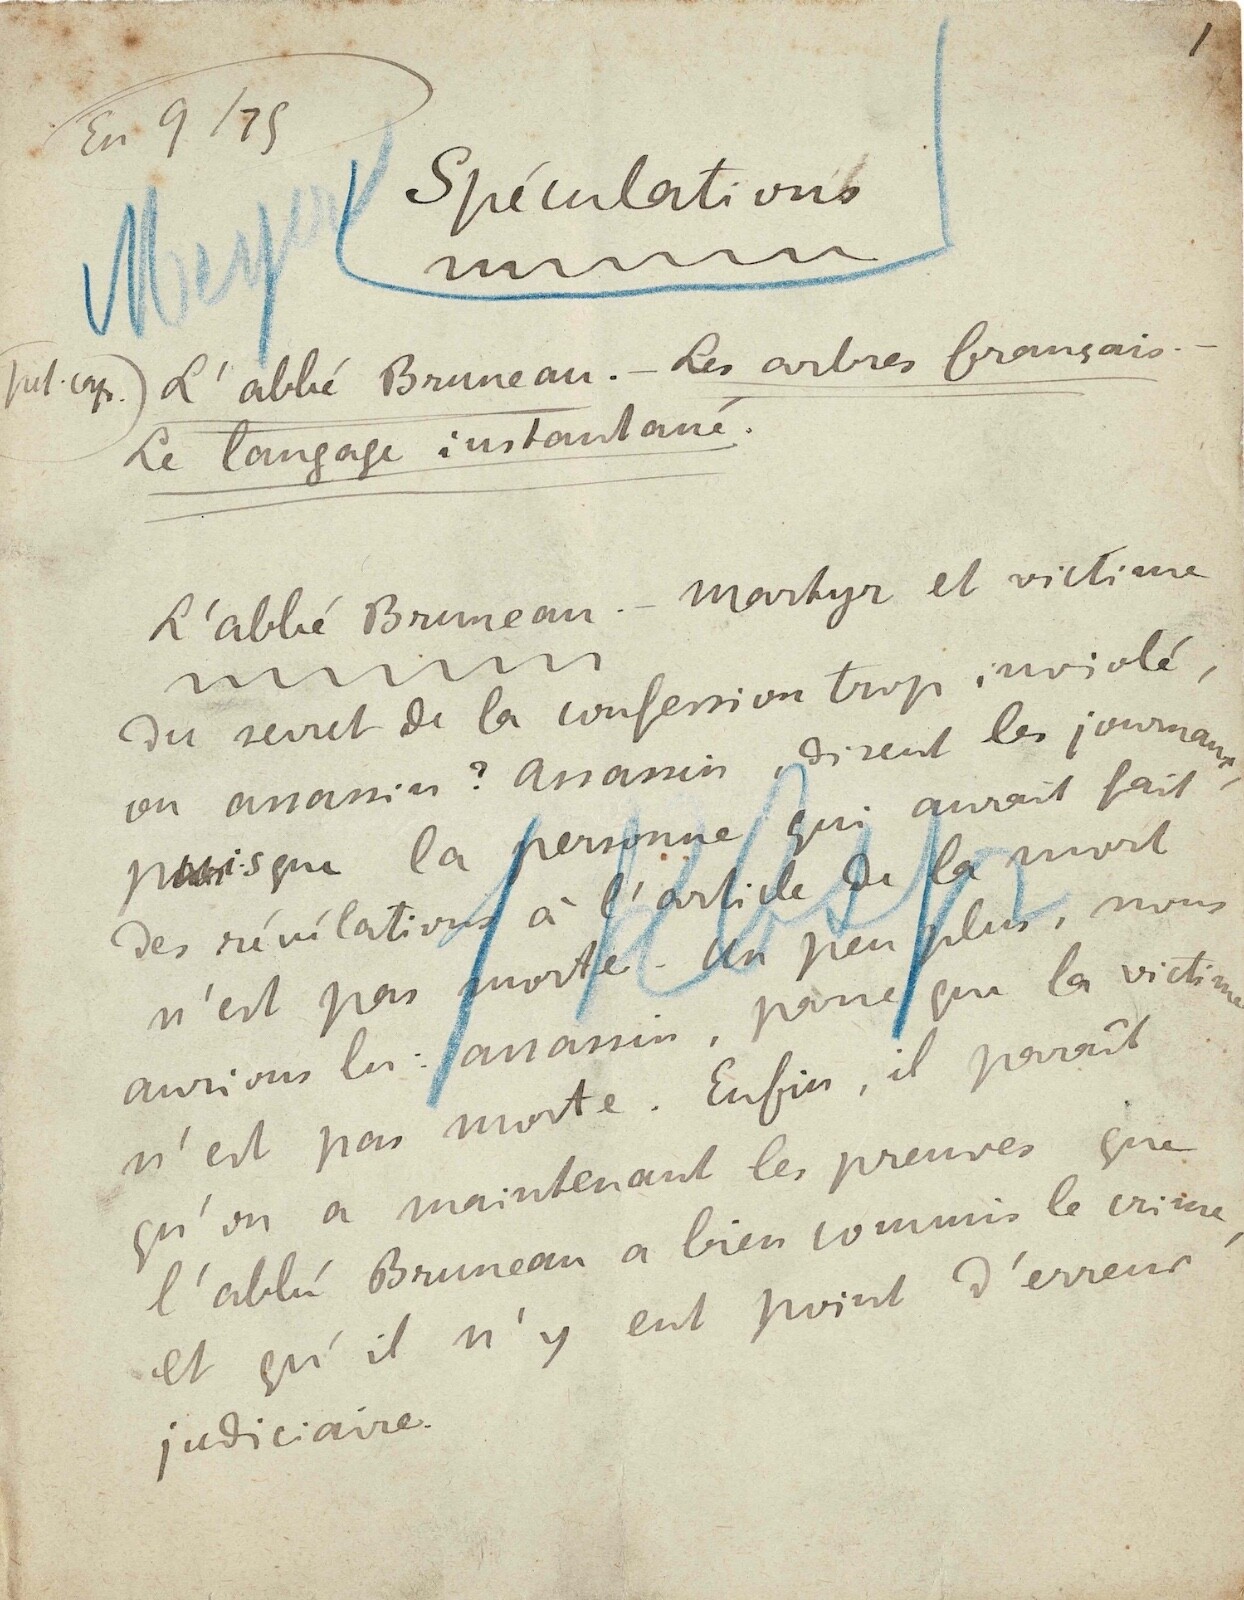 1
En 9/75
Spéculations
Meyer
pet. cap.) L'abbé Bruneau. — Les arbres français. —
Le langage instantané.
L'abbé Bruneau. — Martyr et victime
du secret de la confession trop inviolé,
ou assassin ? Assassin, disent les journaux,
puisque la personne qui aurait fait
des révélations à l'article de la mort
n'est pas morte. Un peu plus, nous
aurions lu : assassin, parce que la victime
n'est pas morte. Enfin, il paraît
qu'on a maintenant les preuves que
l'abbé Bruneau a bien commis le crime,
et qu'il n'y eut point d'erreur
judiciaire.